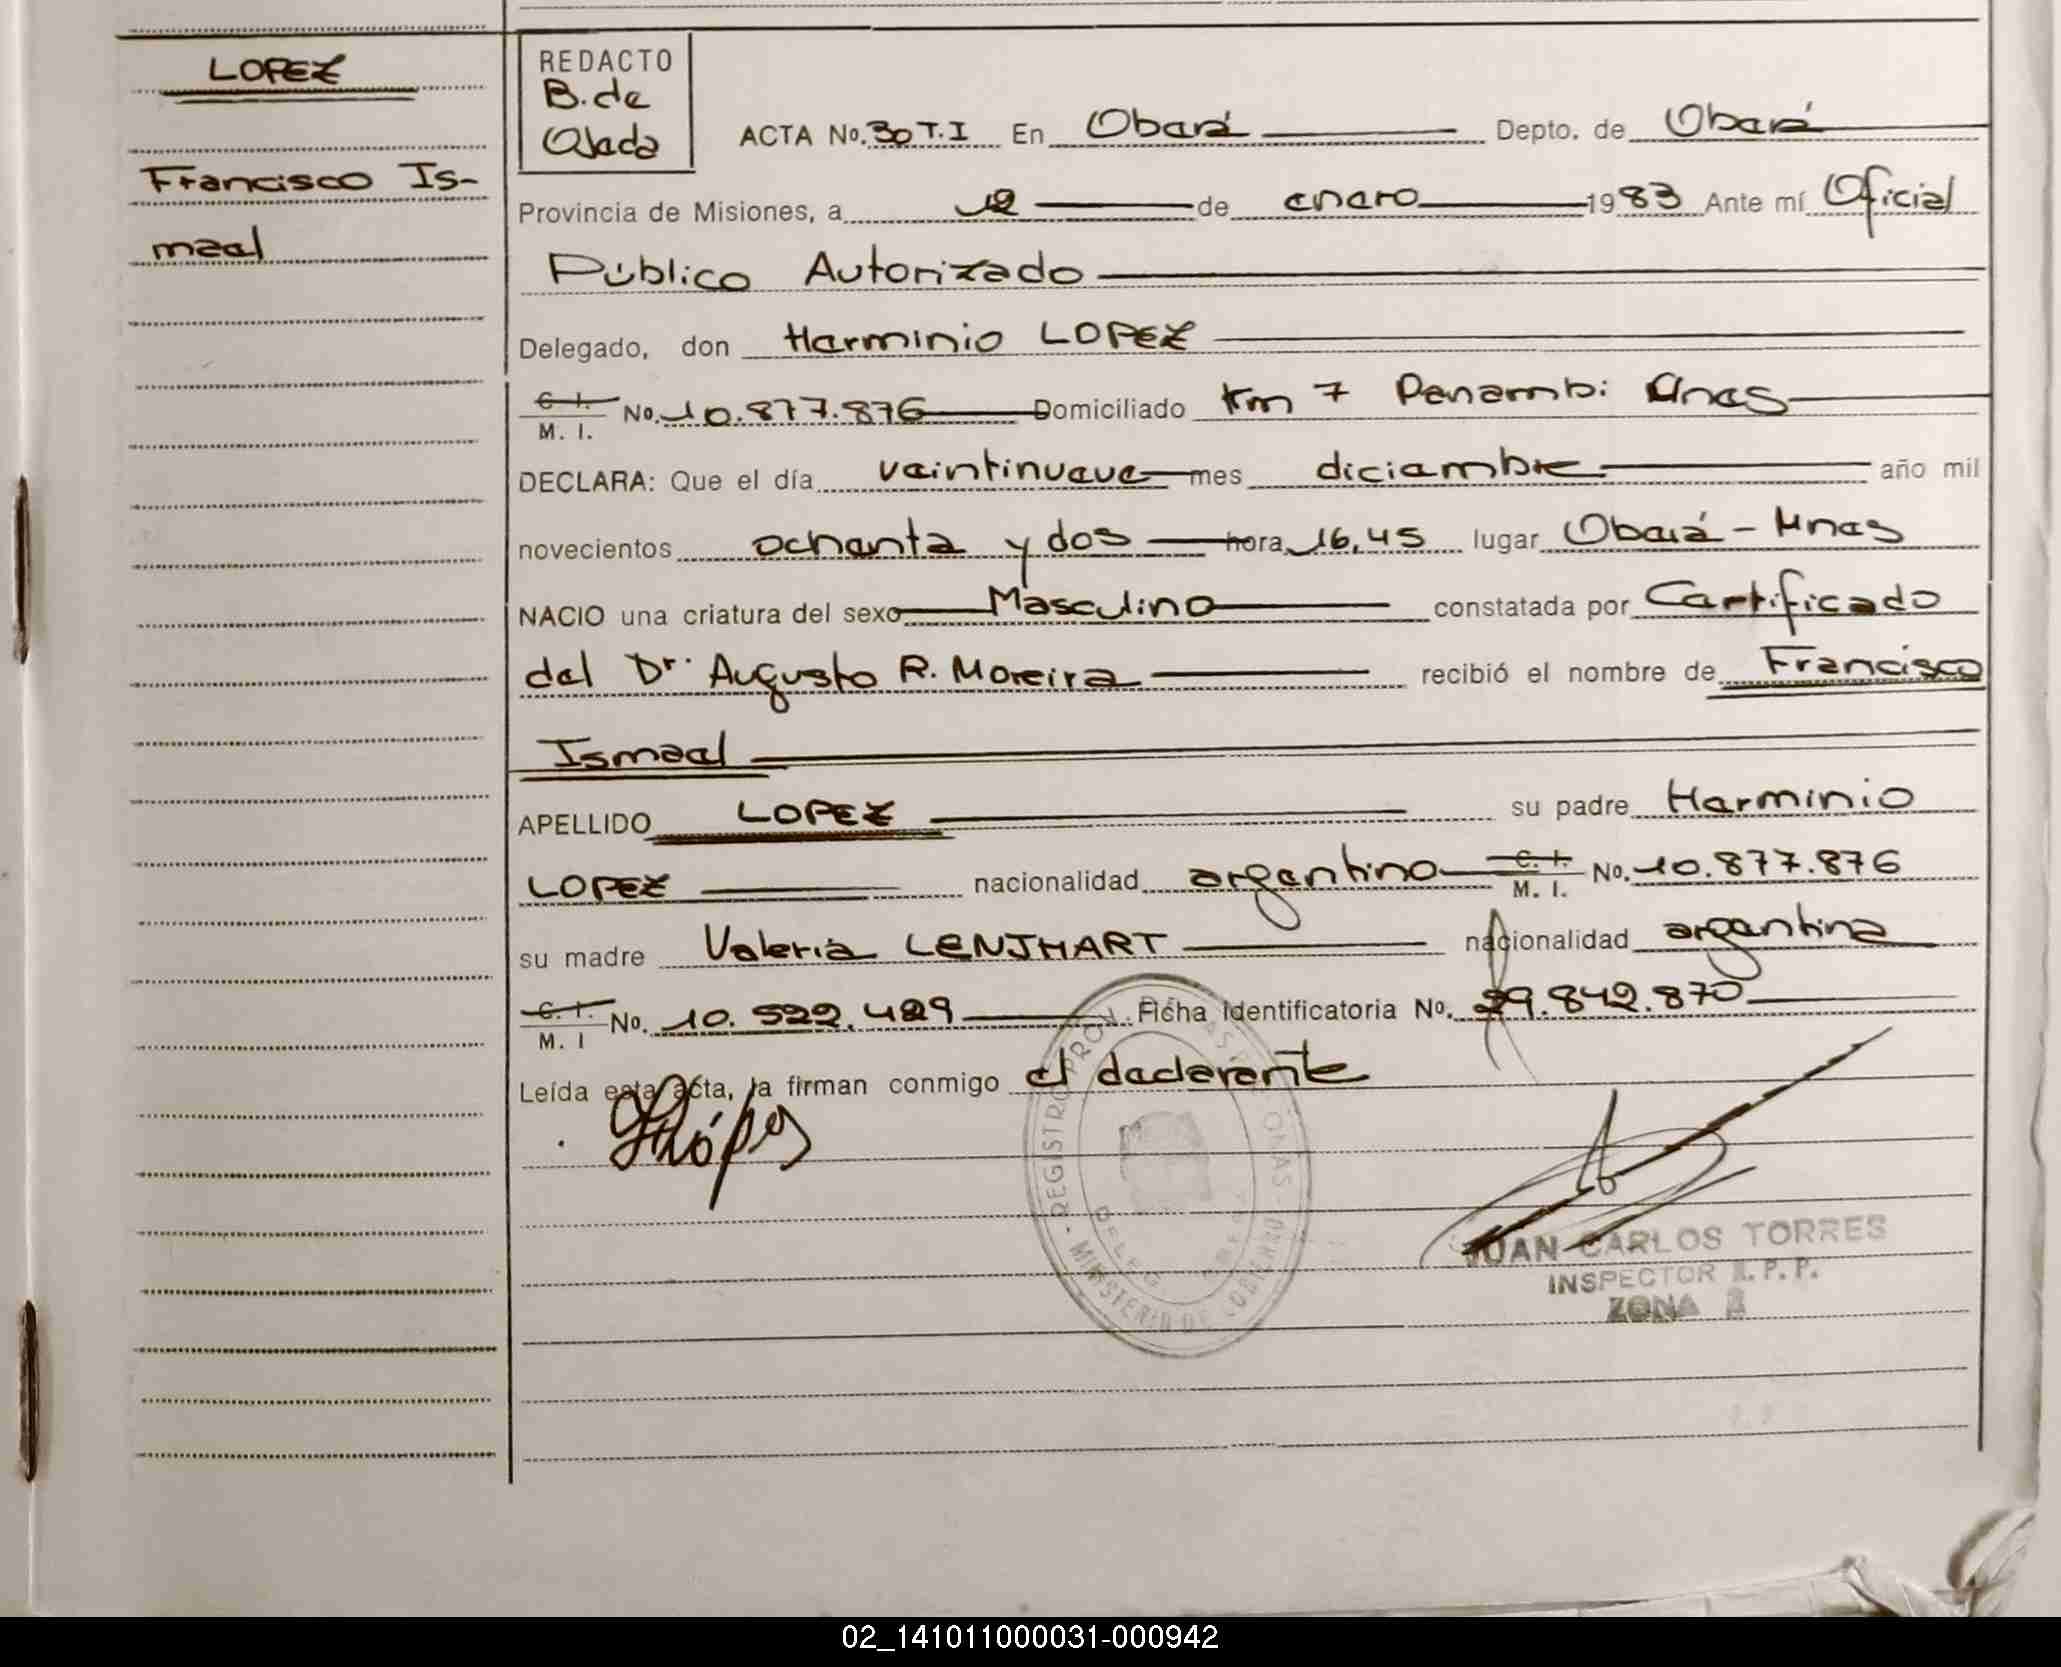 LOPEZ
Francisco Is-
mael
REDACTO
B. de
Ojeda
ACTA No. 30 T.I En Oberá Depto. de Oberá
Provincia de Misiones, a 12 de enero 1983 Ante mí Oficial
Público Autorizado
Delegado, don Herminio LOPEZ
C. I. M. I. No. 10.877.876 Domiciliado Km 7 Panambi Mnes
DECLARA: Que el día veintinueve mes diciembre año mil
novecientos ochenta y dos hora 16,45 lugar Oberá - Mnes
NACIO una criatura del sexo Masculino constatada por Certificado
del Dr. Augusto R. Moreira recibió el nombre de Francisco
Ismael
APELLIDO LOPEZ su padre Herminio
LOPEZ nacionalidad argentino C. I. M. I. No. 10.877.876
su madre Valeria LENJHART nacionalidad argentina
C. I. M. I No. 10.522.429 Ficha identificatoria No. 29.842.870
Leída esta acta, la firman conmigo el declarante
HLópez
JUAN CARLOS TORRES
INSPECTOR R.P.P.
ZONA 2
02_141011000031-000942